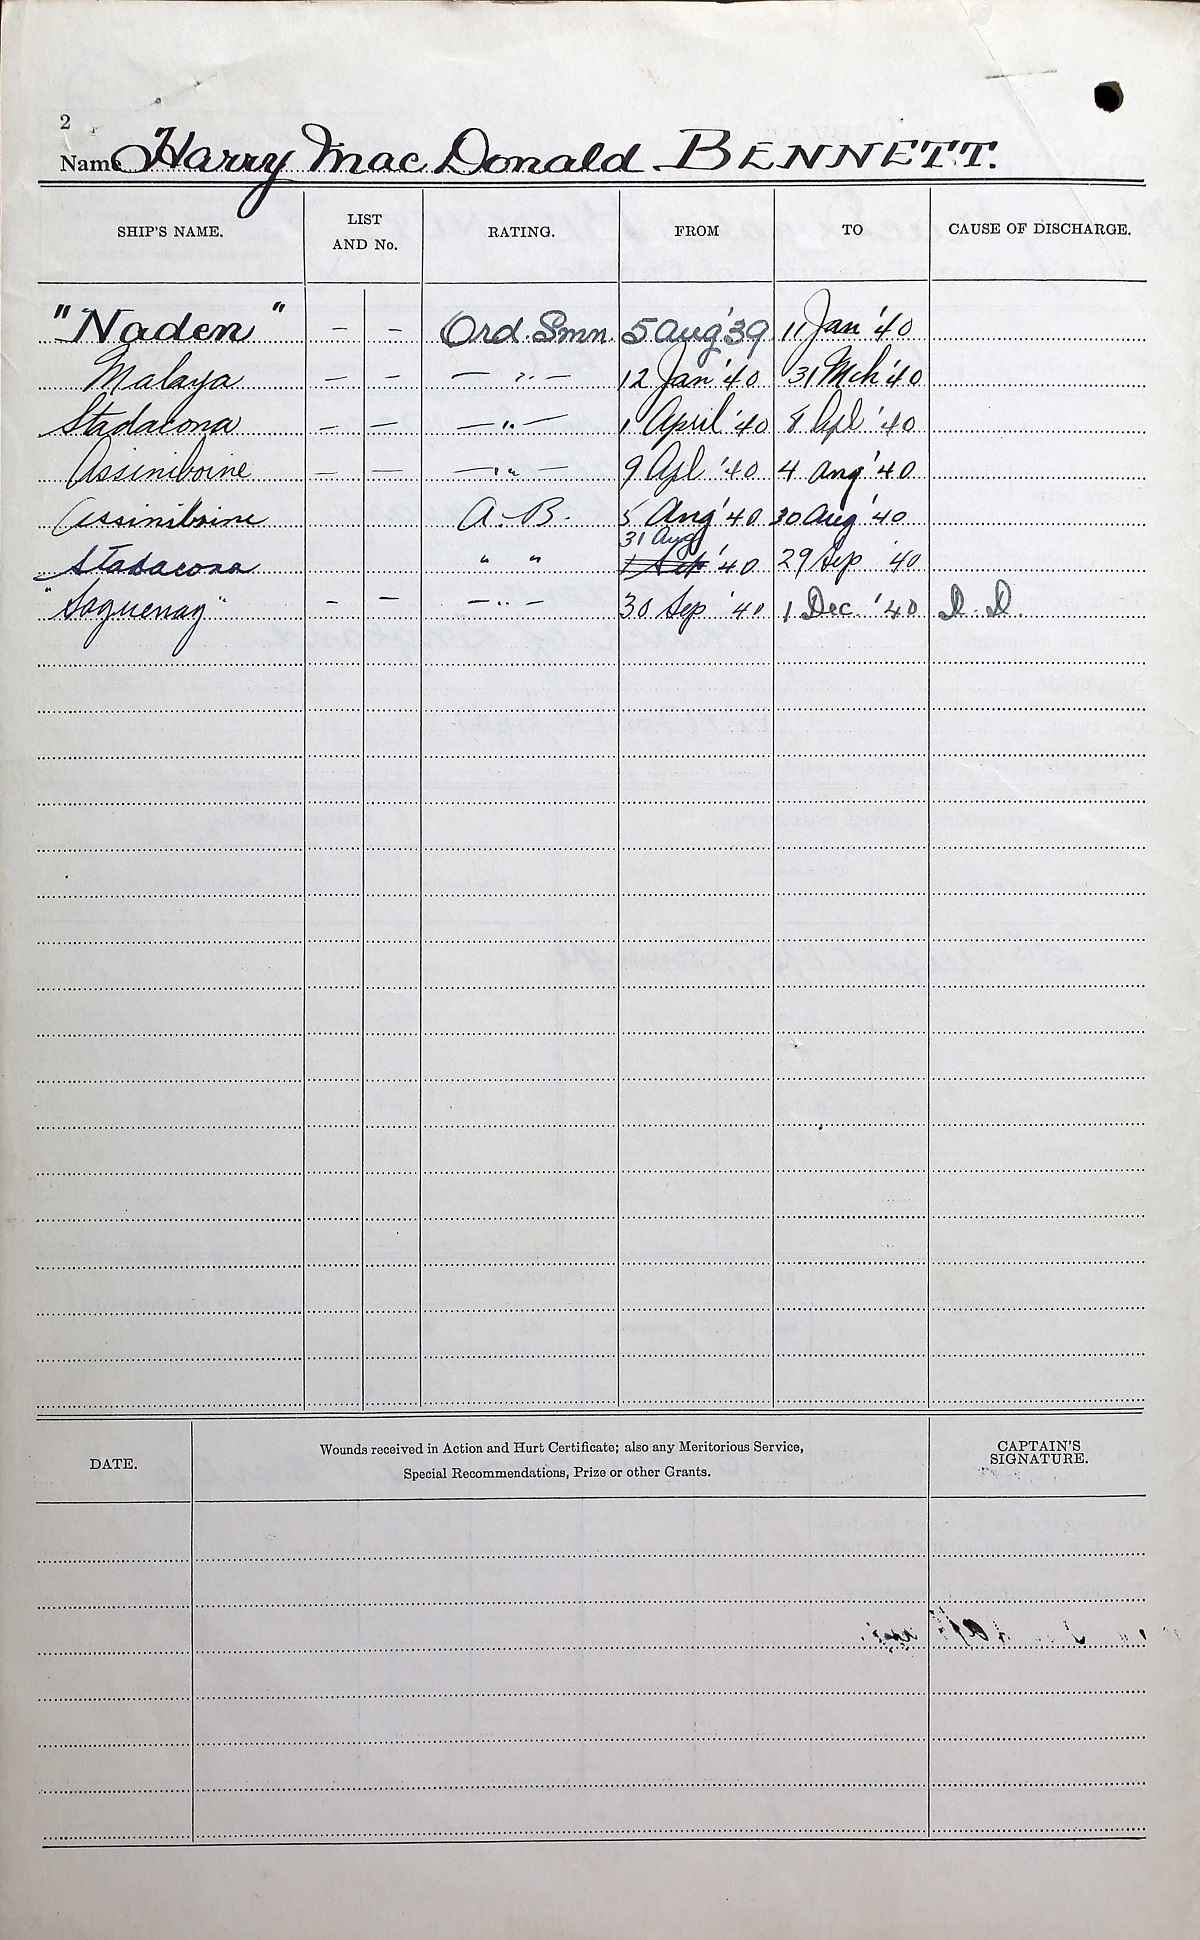 2
Name Harry Mac Donald BENNETT.
SHIP'S NAME. LIST AND No. RATING. FROM TO CAUSE OF DISCHARGE.
"Naden" – – Ord. Smn. 5 Aug '39 11 Jan '40
Malaya – – – " – 12 Jan '40 31 Mch '40
Stadacona – – – " – 1 April '40 8 Apl '40
Assiniboine – – – " – 9 Apl '40 4 Aug '40
Assiniboine A. B. 5 Aug '40 30 Aug '40
31 Aug
Stadacona " " 1 Sep '40 29 Sep '40
"Saguenay" – – – " – 30 Sep '40 1 Dec '40 D. D.
DATE. Wounds received in Action and Hurt Certificate; also any Meritorious Service, CAPTAIN'S
Special Recommendations, Prize or other Grants. SIGNATURE.